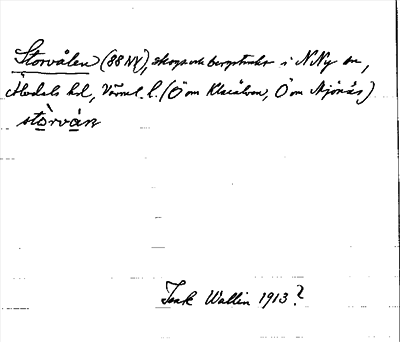 Storvålen (88 NV), skogs och bergstrakt i N Ny sn,
Älvdals hd, Värml. l. (Ö om Klarälven, Ö om Mjönäs)
stòrvàn
Isak Wallin 1913?